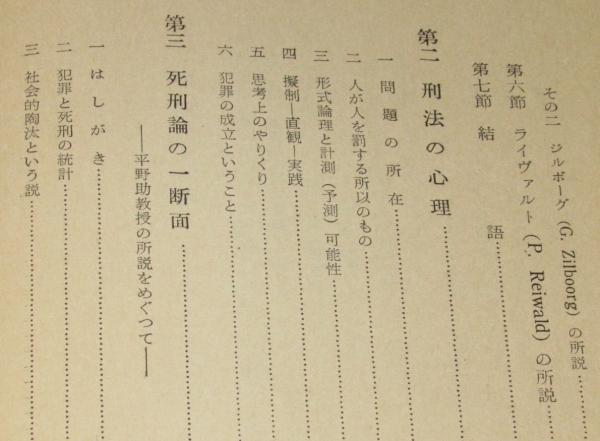 その二 ジルボーグ (G. Zilboorg) の所説
第六節 ライヴァルト (P. Reiwald) の所説
第七節 結語
第二 刑法の心理
一 問題の所在
二 人が人を罰する所以のもの
三 形式論理と計測(予測)可能性
四 擬制―直観―実践
五 思考上のやりくり
六 犯罪の成立ということ
第三 死刑論の一断面
――平野助教授の所説をめぐつて――
一 はしがき
二 犯罪と死刑の統計
三 社会的陶汰という説